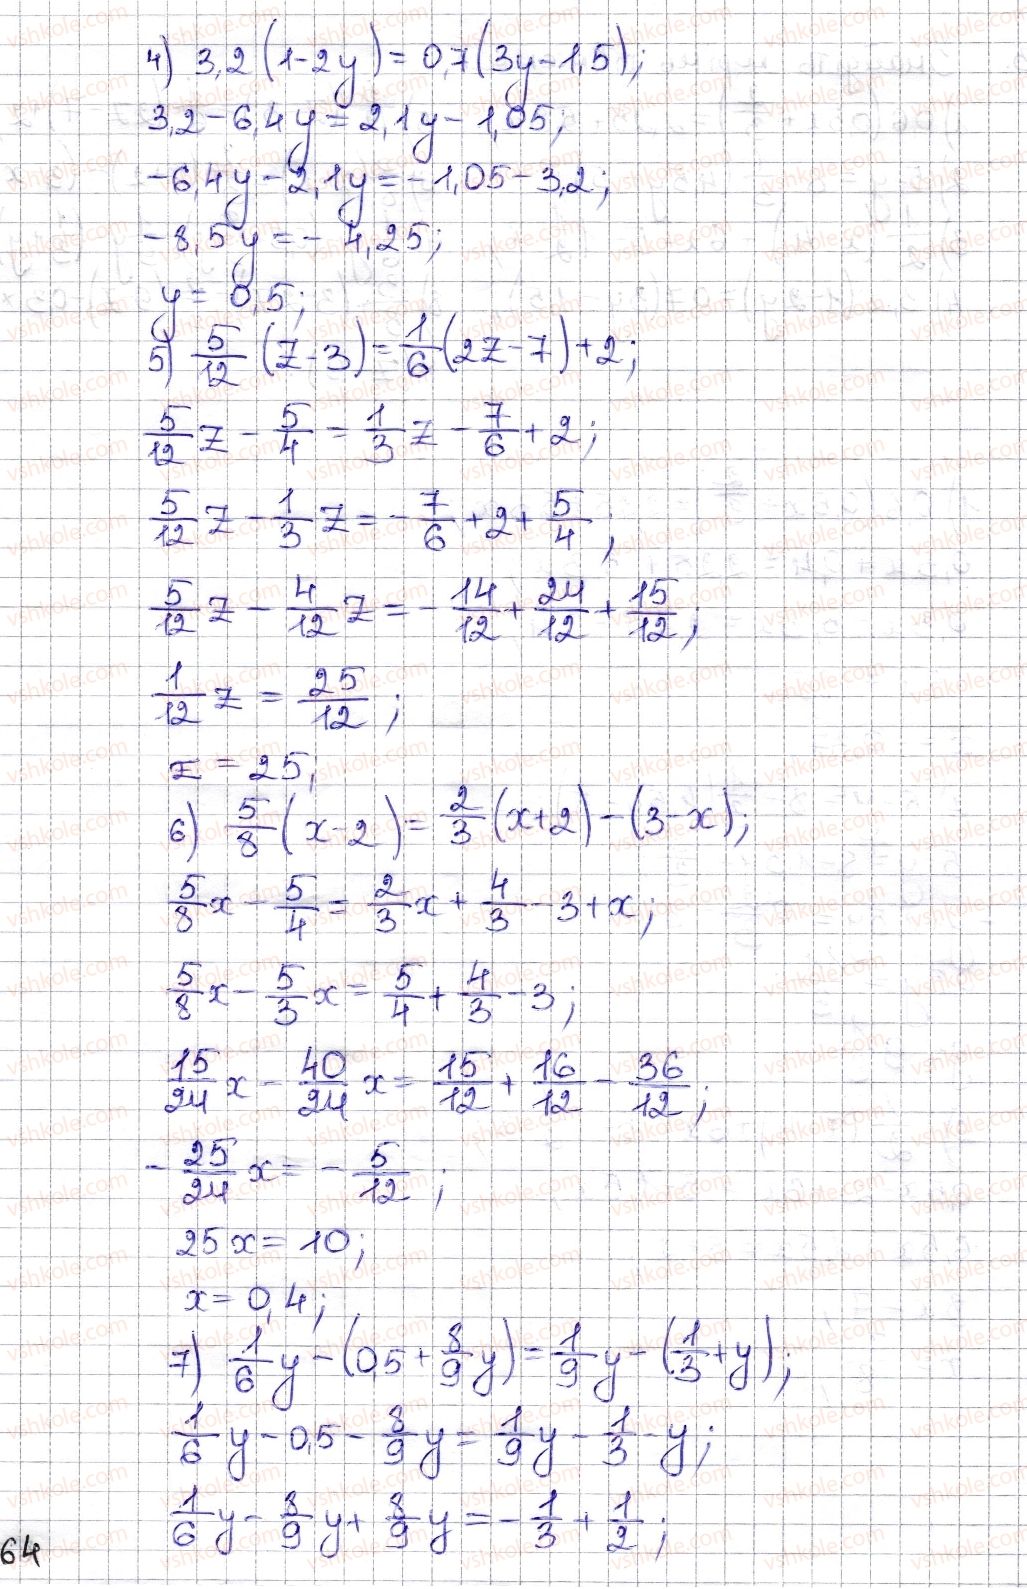 4) 3,2(1-2y)=0,7(3y-1,5);
3,2-6,4y=2,1y-1,05;
-6,4y-2,1y=-1,05-3,2;
-8,5y=-4,25;
y=0,5;
5) 5/12(z-3)=1/6(2z-7)+2;
5/12z-5/4=1/3z-7/6+2;
5/12z-1/3z=-7/6+2+5/4;
5/12z-4/12z=-14/12+24/12+15/12;
1/12z=25/12;
z=25;
6) 5/8(x-2)=2/3(x+2)-(3-x);
5/8x-5/4=2/3x+4/3-3+x;
5/8x-5/3x=5/4+4/3-3;
15/24x-40/24x=15/12+16/12-36/12;
-25/24x=-5/12;
25x=10;
x=0,4;
7) 1/6y-(0,5+8/9y)=1/9y-(1/3+y);
1/6y-0,5-8/9y=1/9y-1/3-y;
1/6y-8/9y+8/9y=-1/3+1/2;
64